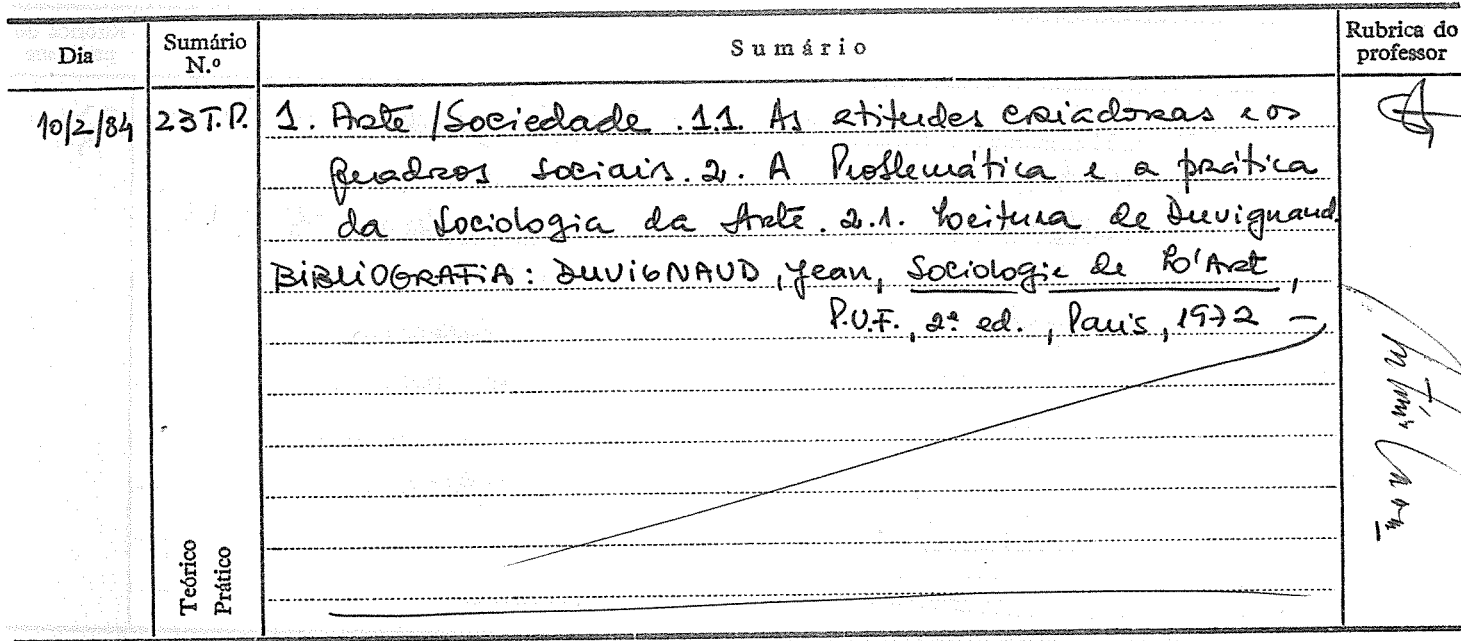 Dia
Sumário N.º
Sumário
Rubrica do professor
10/2/84
23 T.P.
1. Arte / Sociedade . 1.1. As atitudes criadoras e os
quadros sociais. 2. A Problemática e a prática
da Sociologia da Arte. 2.1. Leitura de Duvignaud.
BIBLIOGRAFIA: DUVIGNAUD, Jean, Sociologie de L'Art,
P.U.F., 2ª ed., Paris, 1972 —
Teórico
Prático